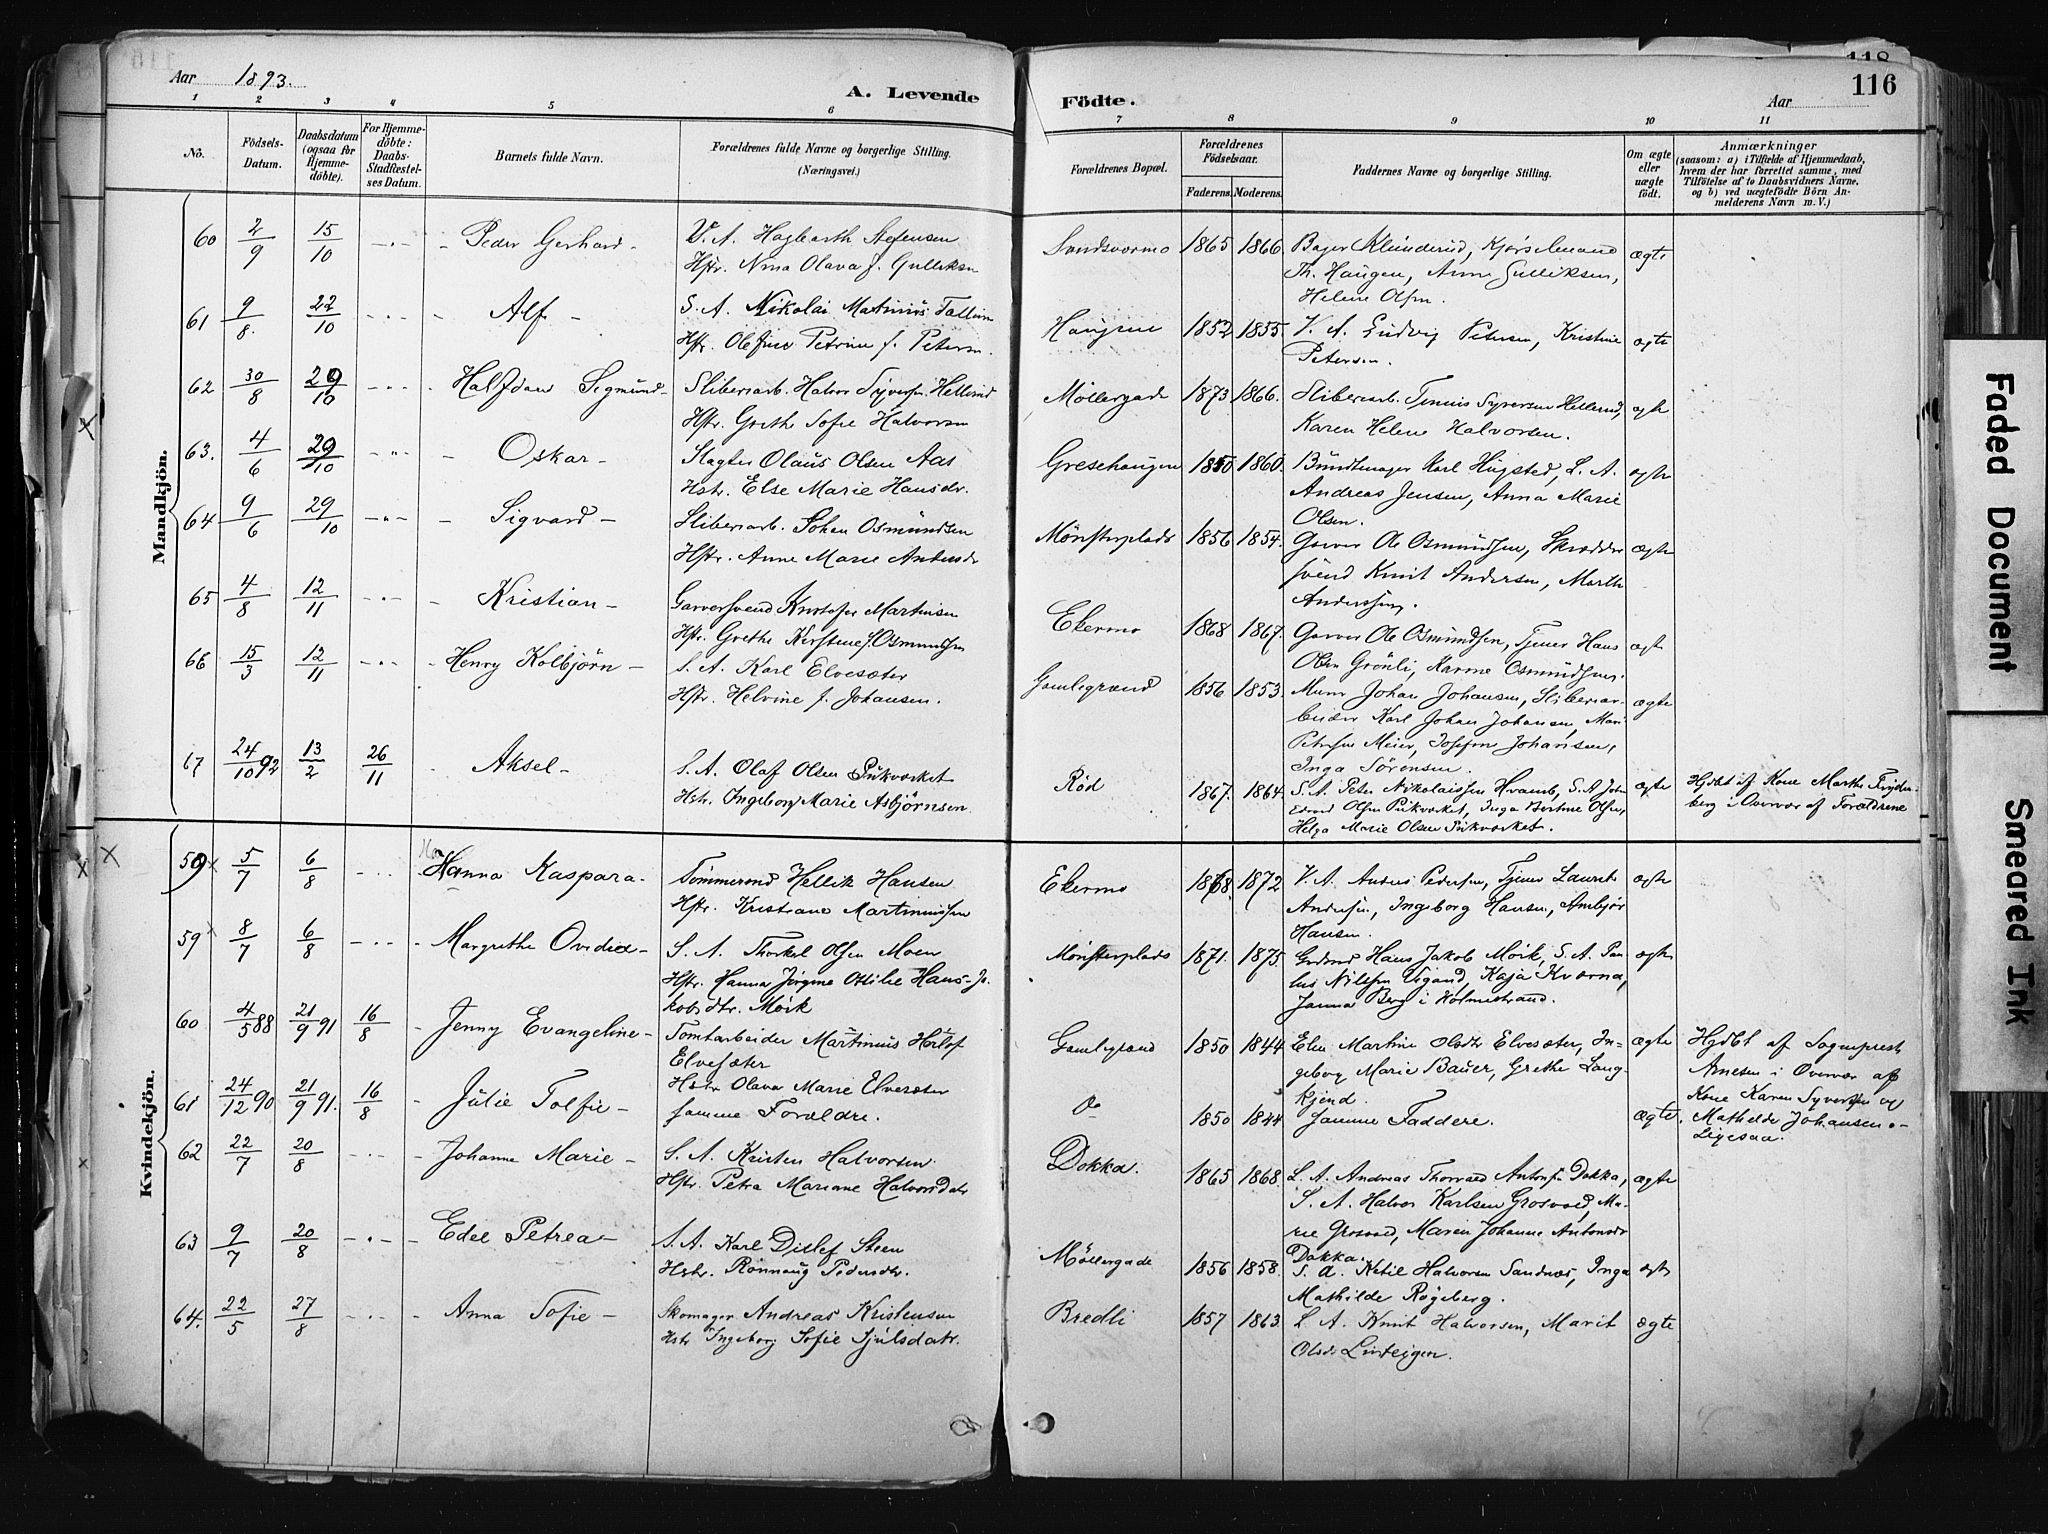 118
116
Aar 1893.
A. Levende
Födte.
Aar
1 2 3 4 5 6 7 8 9 10 11
No.
Födsels-Datum.
Daabsdatum (ogsaa for Hjemme-döbte).
For Hjemme-döbte: Daabs-Stadfæstel-ses Datum.
Barnets fulde Navn.
Forældrenes fulde Navne og borgerlige Stilling. (Næringsvei.)
Forældrenes Bopæl.
Forældrenes Födselsaar.
Faderens. Moderens.
Faddernes Navne og borgerlige Stilling.
Om ægte eller uægte født.
Anmærkninger
(saasom: a) i Tilfælde af Hjemmedaab, hvem der har forrettet samme, med Tilföielse af to Daabsvidners Navne, og b) ved uægtefödte Börn An-melderens Navn m. V.)
Mandkjön.
60 2/9 15/10 Peder Gerhard V. A. Hagbarth Stefensen
Hstr. Nina Olava f. Gulliksn
Sandsværmo 1865 1866 Bager Klunderud, Kjørselmand
Th. Haugen, Anne Gulliksen,
Helene Olsen. ægte
61 9/8 22/10 Alf S. A. Nikolai Martinius
Hstr. Petrine f. Petersn.
Haugene 1852 1855. V. A. Ludvig Petersen, Kristine
Petersen. ægte
62 30/8 29/10 Halfdan Sigmund Sliberiarb. Halvor Syversn Hellerud
Hstr. Grethe Sofie Halvorsn
Möllergade 1873 1866. Sliberiarb. Tinius Syversen Hellerud,
Karen Helene Halvorsen. ægte
63. 4/6 29/10 Oskar Slagter Olaus Olsen Aas
Hstr. Else Marie Hansdr.
Gresehaugen 1850 1860. Bundtmager Karl Hugsted, L. A.
Andreas Jensen, Anna Marie
Olsen. ægte
64 9/6 29/10 Sigvard Sliberiarb. Johan Osmundsen
Hstr. Anne Marie Antonsdr
Mønsterplads 1856 1854. Garver Ole Osmundsen, Skrædder
svend Knut Andersen, Marth.
Andersen. ægte
65 4/8 12/11 Kristian Garversvend Kristofer Martinsen
Hstr. Grethe Kirstine f. Osmundsen
Ekermo 1868 1867. Garver Ole Osmundsen, Tjener Hans
Olsen Grönli, Karine Osmundsen. ægte
66 15/3 12/11 Henry Kolbjörn S. A. Karl Elvesæter
Hstr. Helvine f. Johansen.
Gamlegrænd 1856 1853. Murer Johan Johansen, Sliberiar-
beider Karl Johan Johansen, Mari
Petrine Meier, Josefine Johansen,
Inga Sörensen. ægte
67 24/10 92 13/2 26/11 Aksel S. A. Olaf Olsen Pukværket
Hstr. Ingeborg Marie Asbjörnsen
Röd 1867. 1864. S. A. Peter Nikolaissen Hvamb, S. A. Joh.
Edvard Olsen Pukværket, Inga Bertine Olsen,
Helga Marie Olsen Pukværket. ægte
Hjdbt af Kone Marthe Fryden-
berg i Overvær af Forældrene
Kvindekjön.
59 5/7 6/8 Hanna Kaspara Tömmermd Hellik Hansen
Hstr. Kristiane Martiniussen
Ekermo 1868. 1872 V. A. Anders Pedersen, Tjener Laurits
Andersen, Ingeborg Hansen, Ambjør
Hansen. ægte
59 8/7 6/8 Margrethe Ovidia S. A. Thorkel Olsen Moen
Hstr. Hanna Jörgine Ottilie Hans-Ja-
kobsdtr. Möik
Mønsterplads 1871. 1875. Hans Jakob Möik, S. A. Pau-
lus Nilssen Vigand, Kaja Kværna,
Janna Berg i Holmestrand. ægte
60 4/5 88 21/9 91 16/8 Jenny Evangeline Tomtarbeider Martinius Herlof
Elvesæter
Hstr Olava Marie Elvesæter
Gamlegrænd 1850 1844 Elen Martine Olsdtr Elvesæter, In-
geborg Marie Bauer, Grethe Lang-
kjend. ægte
Hjdbt af Sogneprest
Arnesen i Overvær af
Kone Karen Syversen og
Mathilde Johansen.
Ligesaa.
61 24/12 90 21/9 91. 16/8 Julie Tolfie samme Forældre.
Do 1850 1844 samme Faddere. ægte.
62 22/7 20/8 Johanne Marie S. A. Kristen Halvorsen.
Hstr. Petra Mariane Halvorsdatr
Dokka. 1865 1868. L. A. Andreas Thorvald Antonsen Dokka,
S. A. Halvor Karlsen Grosvold, Ma-
rie Grosvold, Maren Johanne Antonsdr
Dokka. ægte
63 9/7 20/8 Edel Petrea S. A. Karl Ditlef Steen
Hstr. Rönnaug Pedersdtr.
Møllergade 1856 1858. S. A. Ketil Halvorsen Sandnæs, Inga
Mathilde Røgeberg. ægte
64. 22/5 27/8 Anna Sofie Skomager Andreas Kristensen
Hstr Ingeborg Sofie Tjulsdatr.
Bredli 1857 1863. L. A. Knut Halvorsen, Marit
Olsdr Linteigen. ægte
Faded Document
Smeared Ink